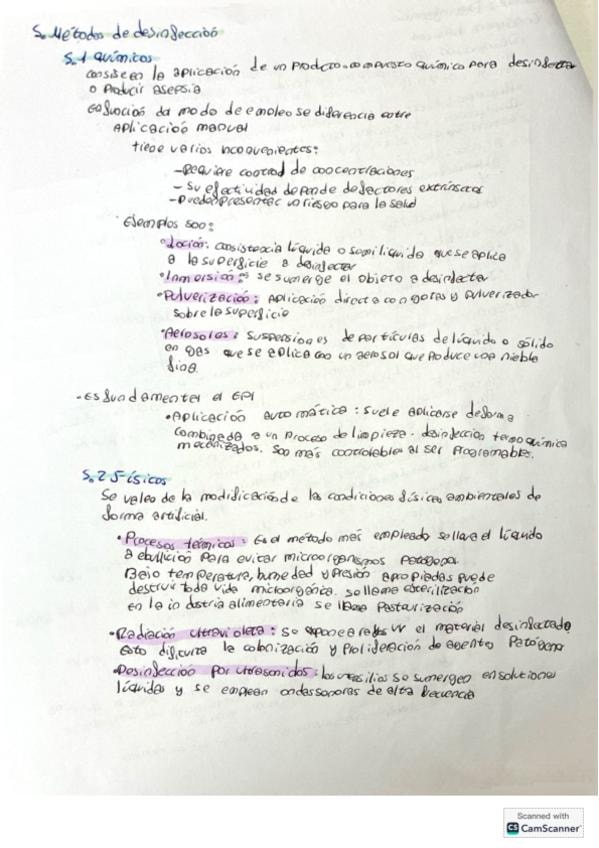 5. Métodos de desinfección
5.1 químicos
consiste en la aplicación de un producto o compuesto químico para desinfectar
o producir asepsia
en función da modo de empleo se diferencia entre
Aplicación manual
tiene varios inconvenientes:
- Requiere control de concentraciones
- Su efectividad depende de factores extrínsecos
- Pueden presentar un riesgo para la salud
Ejemplos son:
• Loción: consistencia líquida o semilíquida que se aplica
a la superficie a desinfectar
• Inmersión: se sumerge el objeto a desinfectar
• Pulverización: Aplicación directa con gotas y pulverizador
sobre la superficie
• Aerosoles: suspensiones de partículas de líquido o sólido
en gas que se aplica con un aerosol que produce una niebla
fina.
- Es fundamental el EPI
• Aplicación automática: suele aplicarse de forma
combinada a un proceso de limpieza - desinfección termoquímica
mecanizados. Son más controlables al ser programables.
5.2 Físicos
Se valen de la modificación de las condiciones físicas ambientales de
forma artificial.
• Procesos térmicos: Es el método más empleado se lleva el líquido
a ebullición para evitar microorganismos patógenos.
Bajo temperatura, humedad y presión apropiadas puede
destruir toda vida microorgánica. se llama esterilización
en la industria alimentaria se llama pasteurización
• Radiación ultravioleta: se expone a rayos UV el material desinfectado
esto dificulta la colonización y proliferación de agentes patógenos
• Desinfección por ultrasonidos: los utensilios se sumergen en soluciones
líquidas y se emplean ondas sonoras de alta frecuencia
Scanned with
CS CamScanner